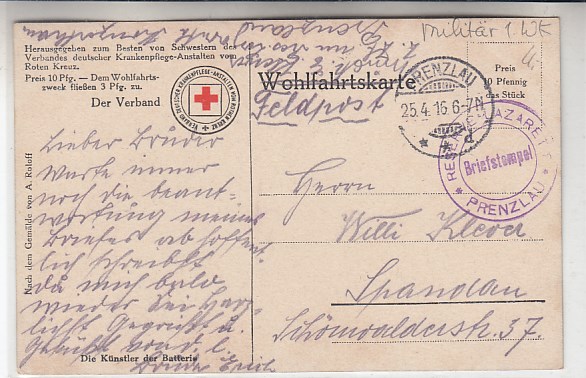 Militär 1. WK
Herausgegeben zum Besten von Schwestern des
Verbandes deutscher Krankenpflege-Anstalten vom
Roten Kreuz.
Preis 10 Pfg. — Dem Wohlfahrts-
zweck fließen 3 Pfg. zu.
Der Verband
VERBAND DEUTSCHER KRANKENPFLEGE-ANSTALTEN VOM ROTEN KREUZ
Wohlfahrtskarte
Feldpost
Preis
10 Pfennig
das Stück
PRENZLAU
25.4.16.6-7N
RESERVE LAZARETT
Briefstempel
* PRENZLAU *
Lieber Bruder
Warte immer
noch die beant-
wortung meines
Briefes ab hoffent-
lich schreibst
du mir bald
wieder Sei herz-
lichst Gegrüßt u.
Geküßt von d. l.
Bruder Erich
Herrn
Willi Klever
Spandau
Schönwalderstr. 37.
Nach dem Gemälde von A. Roloff
Die Künstler der Batterie